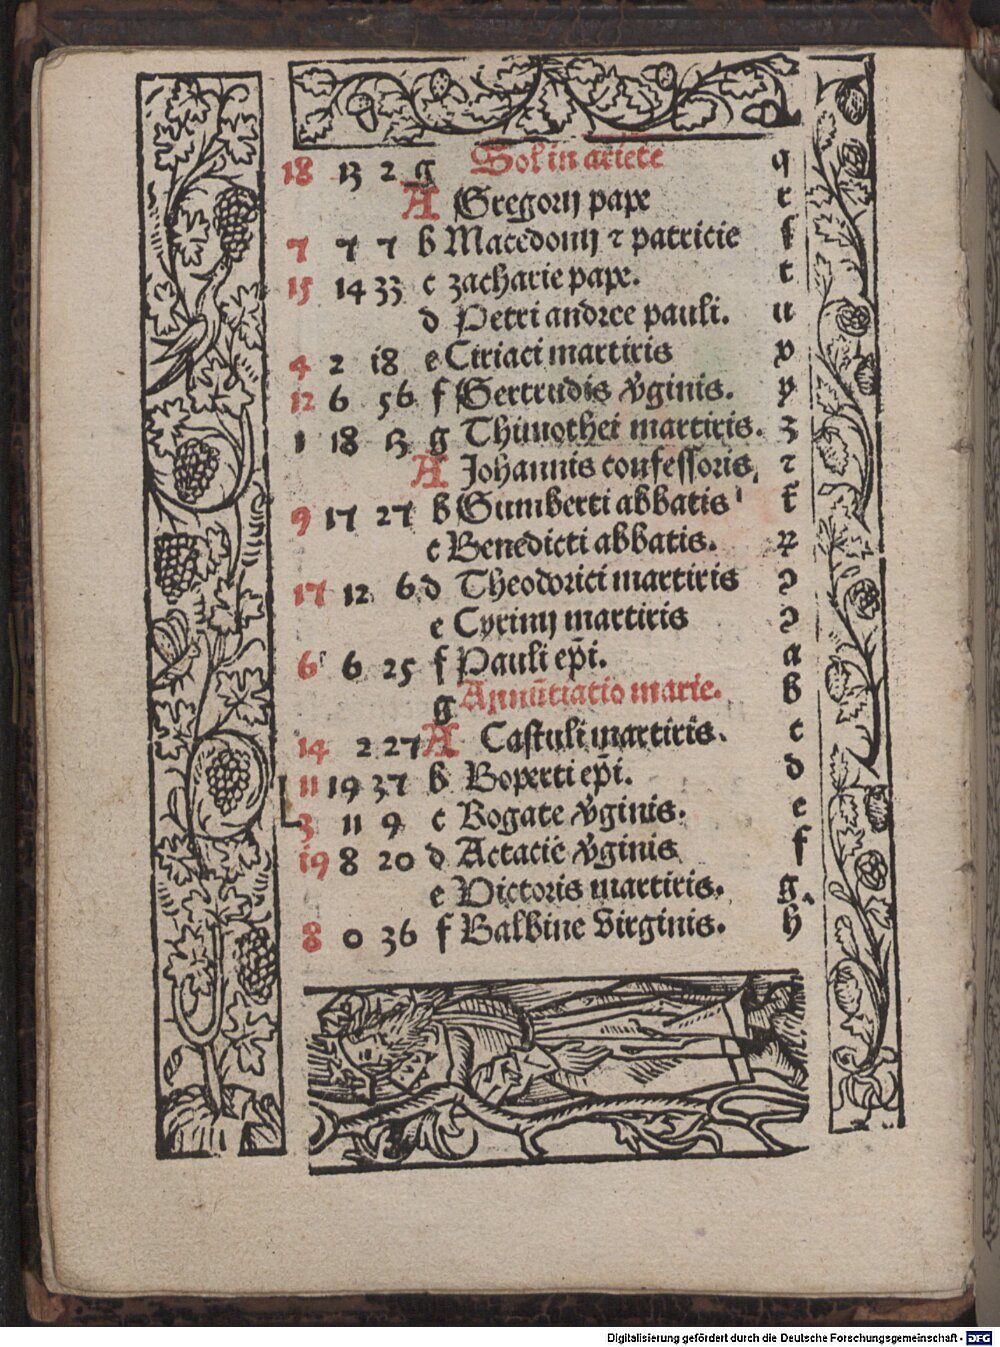 18 13 2 g Sol in ariete q
A Gregorij pape r
7 7 7 b Macedonij ⁊ patricie ſ
15 14 33 c zacharie pape. t
d Petri andree pauli. u
4 2 18 e Ciriaci martiris v
12 6 56 f Gertrudis v̾ginis. y
1 18 13 g Thimothei martiris. z
A Johannis confeſſoris ⁊
9 17 27 b Gumberti abbatis
c Benedicti abbatis.
17 12 6 d Theodorici martiris ꝰ
e Cyrinij martiris ꝰ
6 6 25 f Pauli ep̄i. a
g Annūtiatio marie. b
14 2 27 A Caſtuli martiris. c
11 19 37 b Roperti ep̄i. d
3 11 9 c Rogate v̾ginis. e
19 8 20 d Actacie v̾ginis f
e Victoris martiris. g
8 0 36 f Balbine virginis. h
Digitalisierung gefördert durch die Deutsche Forschungsgemeinschaft - DFG